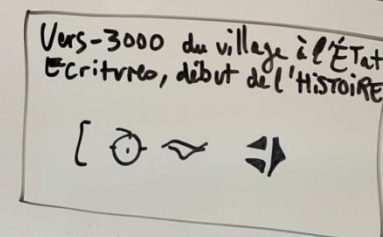 Vers-3000 du village à l'ÉTat
Ecritures, début de l'HISTOIRE